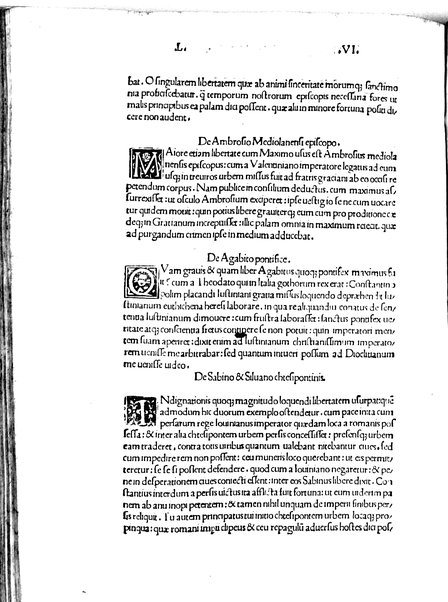 L. .VI.
bat. O singularem libertatem quæ ab animi sinceritate morumq; sanctimo
nia proficiscebatur. q̃ temporum nostrorum episcopis necessaria fores ut
malis principibus ea palam dici possent. quæ alii in minore fortuna positi di
cere non audent.
De Ambrosio Mediolanensi episcopo.
MAiore etiam libertate cum Maximo usus est Ambrosius mediola
nensis episcopus: cum a Valentiniano imperatore legatus ad eum
usq; in treuiros urbem missus fuit ad fratris gratiani ab eo occisi re
petendum corpus. Nam publice in consilium deductus. cum maximus as
surrexisset: ut osculo Ambrosium exciperet: ipse uestigio se ne cum uocare
tur quidem mouit: quin potius libere grauiterq; eum cum proditione cæ
deq; in Gratianum increpuisset: illic palam omnia in maximum reiecit. quæ
ad purgandum crimen ipse in medium adducebat.
De Agabito pontifice.
QVam grauis & quam liber Agabitus quoq; pontifex maximus fu
it: cum a Theodato qui in Italia gothorum rex erat: Constantino
polim placandi Iustiniani gratia missus loquendo depræhendit Iu
stinianum euthichena heresi laborare. in qua re aliquandiu conatus de sen
tentia Iustinianum dimouere: cum frustra laborasset: sanctus pontifex ue
ritate atq; conscientia fretus continere se non potuit: quin imperatori men
tem suam aperiret: dixit enim ad Iustinianum christianissimum imperato
rem uenisse me arbitrabar: sed quantum intueri possum ad Dioclitianum
me uenisse uideo.
De Sabino & Siluano chtesipontinis.
INdignationis quoq; magnitudo loquendi libertatem usurpat: quẽ
admodum hic duorum exemplo ostendetur. cum pace inita cum
persarum rege Iouinianus imperator quædam loca a romanis pos
sessa: & inter alia chtesipontem urbem persis concessisset: præsensq; urbem
eam traderet, contra totis uiribus quantum ualebant nitebantur ciues. sed
cum impedire rem non possent: ceu muneris loco querebant: ut eis permit
teretur: se se si possent defendere. quod cum a Iouiniano negaretur: & pe
ne in desperationem ciues coniecti essent: inter eos Sabinus libere dixit. Con
stantius interdum a persis uictus ita afflicta fuit fortuna: ut eum uiderim pa
nem ab anu inopi petentem: & tamen nihil unquam de imperii finibus per
sis reliquit. Tu autem principatus tui initio chtesipontem urbem locaq; pro
pinqua: quæ romani imperii clipeus & ceu repagulũ aduersus hostes dici pos,